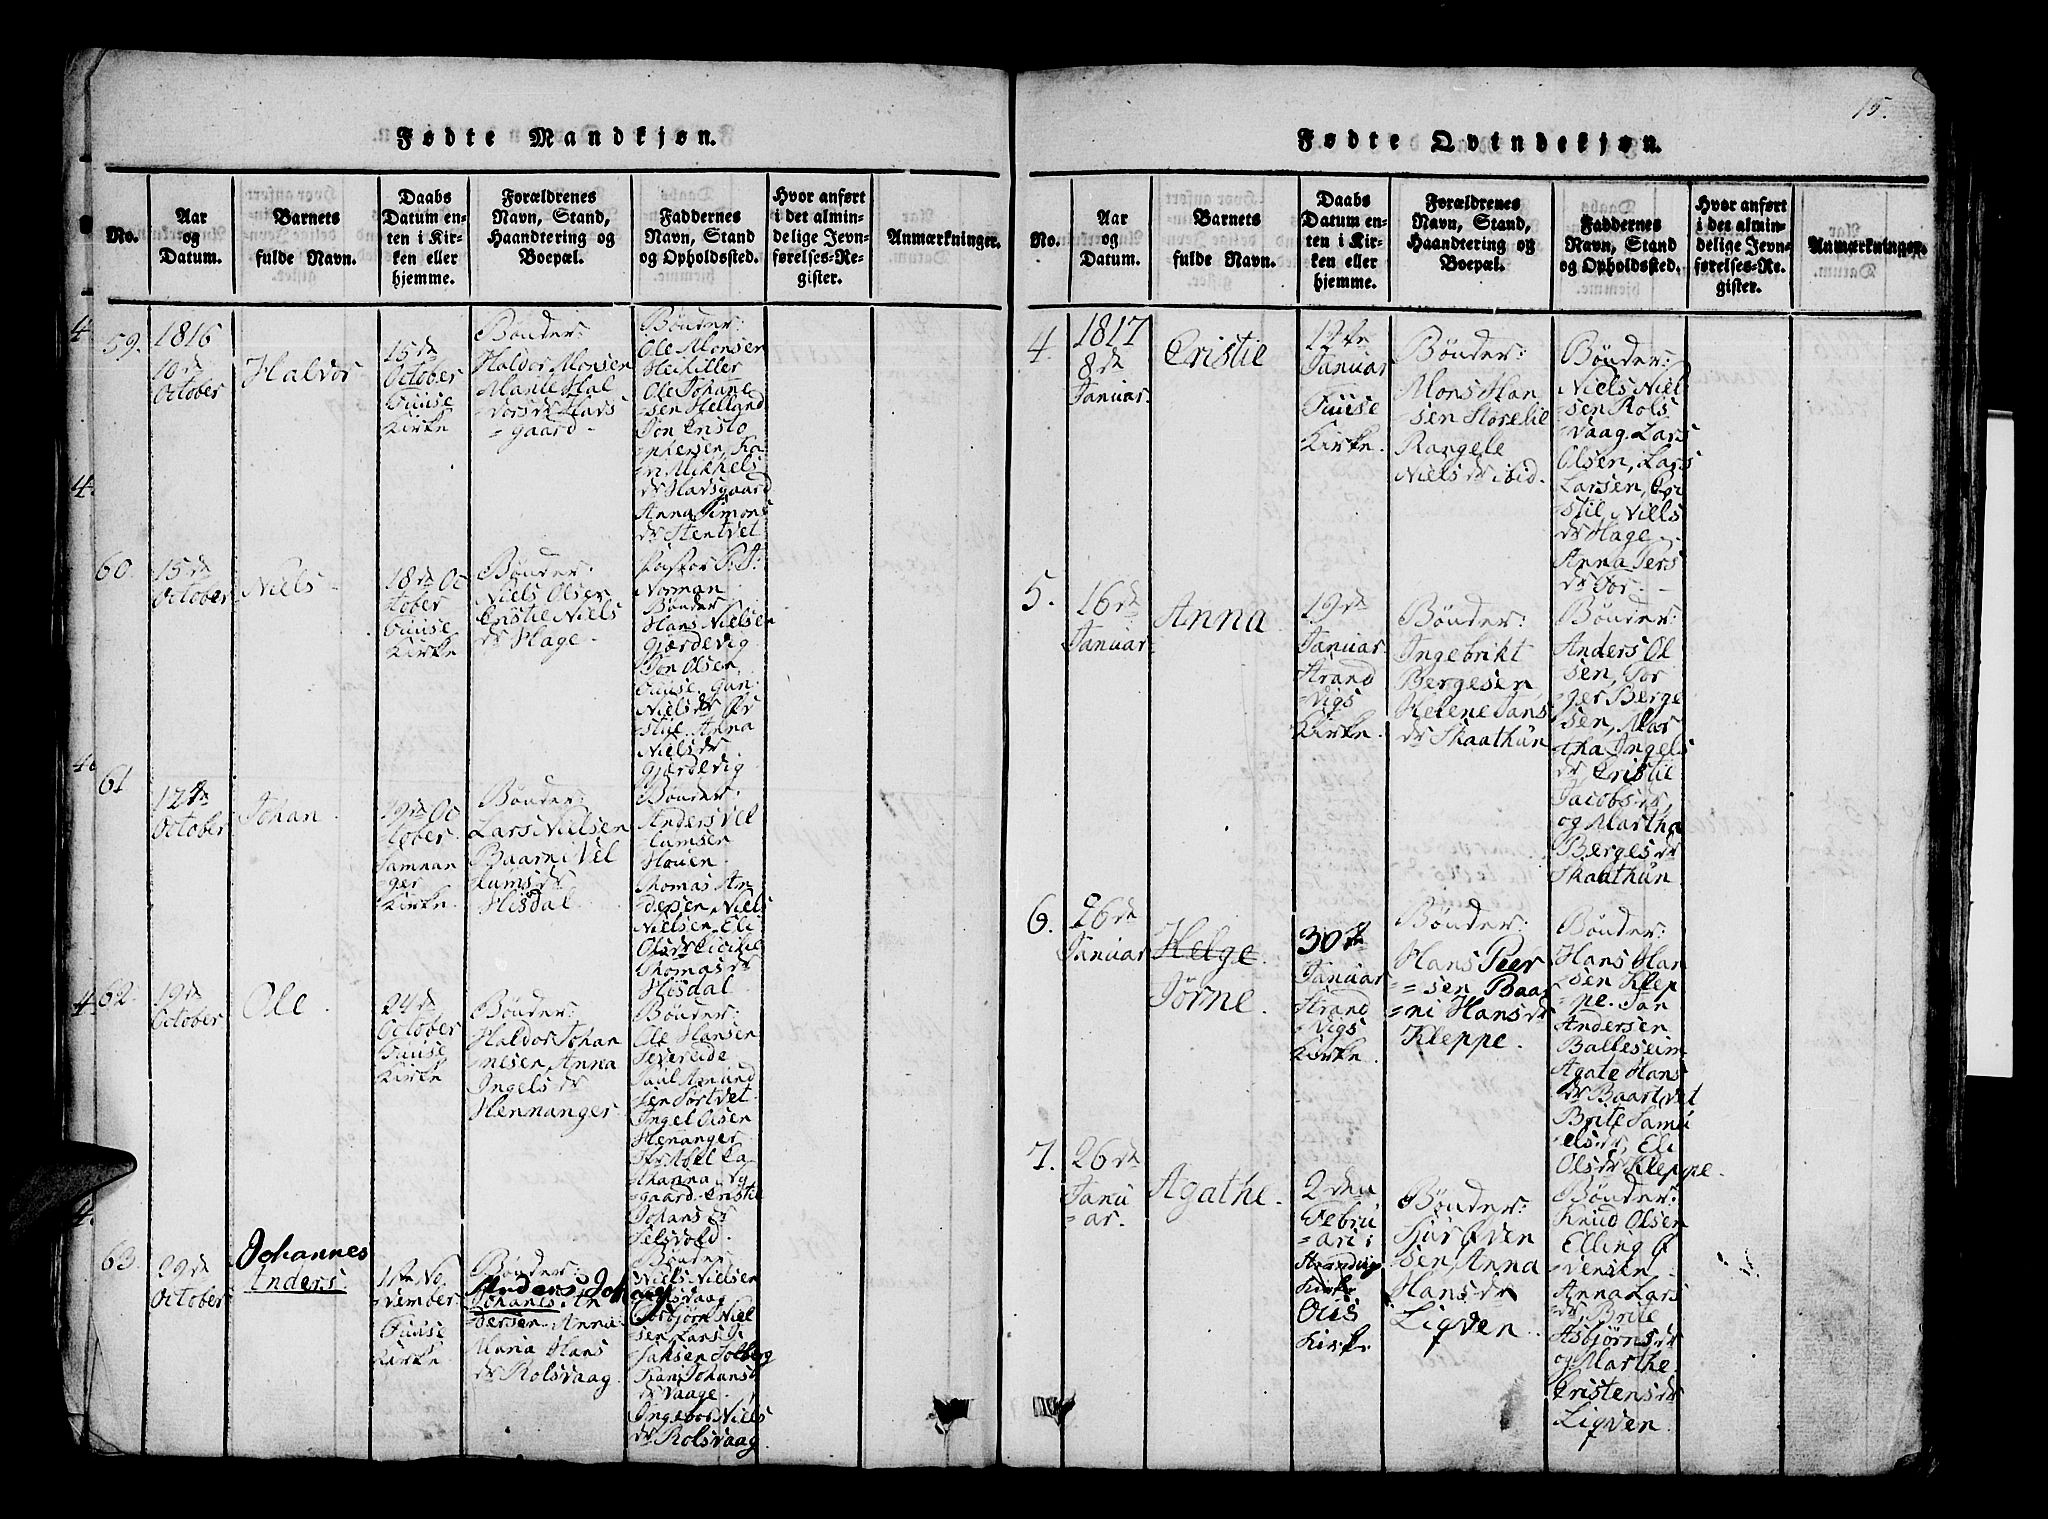 Fødte Mandkjøn.
No.
Aar
og
Datum.
Barnets
fulde Navn.
Daabs
Datum en-
ten i Kir-
ken eller
hjemme.
Forældrenes
Navn, Stand,
Haandtering og
Boepæl.
Faddernes
Navn, Stand
og Opholdssted.
Hvor anført
i det almin-
delige Jevn-
førelses-Re-
gister.
Anmærkninger.
59.
1816
10de
October
Halvor
15de
October
Fuuse
Kirke
Bønder:
Haldor Monsen
Marite Hal
vorsdr Havs
=gaard
Bønder:
Ole Monsen
Ole Johanne
sen Helland
Jon Cristo
phersen, Ka
ri Mikkels
dr Havsgaard
Anna Simons
dr Stentvet
60.
15de
October
Niels
18de Oc
tober
Fuuse
Kirke
Bønder:
Niels Olsen
Cristie Niels
dr Hage
Pastor
Norman
Bønder
Hans Nielsen
Gjærdevig
Jon Olsen
Fuuse, Gun
Nielsdr Øv
stie. Anna
Nielsdr
Gjærdevig
61
17de
October
Johan
29de Oc
tober
Samnan
ger
Kirke
Bønder:
Lars Nielsen
Baarni Vel
lumsdr
Hisdal
Bønder:
Anders Vel
lumsen
Houen
Thomas An
dersen, Niels
Nielsen, Eli
Olsdr Cicilie
Thomasdr
Hisdal
62.
19de
October
Ole
24de
October
Fuuse
Kirke
Bønder:
Haldor Johan
nesen, Anna
Ingelsdr
Hennanger
Bønder:
Ole Hansen
Severeide
Paul Amund
sen Sørtvet
Ingel Olsen
Henanger
Johanna
gaard. Cristie
Johansdr
Selsvold
63.
29de
October
Johannes
Anders
1ste No
vember
Fuuse
Kirke
Bønder:
Anders Johan
Johanes An
dersen. Anna
Maria Hans
dr Rolsvaag
Bønder
Niels Nielsen
Rolsvaag
Torbjørn Niel
sen, Lars
Jaksen Solberg
Kari Johans
dr Vaage
Ingebor Niels
dr Rolsvaag
15.
Fødte Qvindekjøn.
No.
Aar
og
Datum.
Barnets
fulde Navn.
Daabs
Datum en-
ten i Kir-
ken eller
hjemme.
Forældrenes
Navn, Stand,
Haandtering og
Boepæl.
Faddernes
Navn, Stand
og Opholdssted.
Hvor anført
i det almin-
delige Jevn-
førelses-Re-
gister.
Anmærkninger.
4.
1817
8de
Januar.
Cristie
12te
Januar
Fuuse
Kirke.
Bønder:
Mons Han
sen Storelie
Rangele
Nielsdr ibid.
Bønder:
Niels Niel
sen Rols
vaag. Lars
Olsen, Lars
Larsen, Cri
stie Niels
dr Hage
Anna Pers
dr Tor
5.
16de
Januar
Anna
19de
Januar
Strand
=vigs
Kirke.
Bønder:
Ingebrikt
Bergesen,
Helene Jans
dr Skaathun
Bønder:
Anders Ol
sen, Tor
=ger Berge
sen, Mar
tha Ingels
dr, Cristie
Jacobsdr,
og Martha
Bergesdr
Skaathun
6.
26de
Januar
Helge.
Jørne.
30te
Januar
Strand
=vigs
Kirke.
Bønder:
Hans Peer
=sen Baar
=ni Hansdr
Kleppe.
Bønder:
Hans Han
sen Klep
=pe. Jan
Andersen
Balleseim
Agate Hans
dr Baartvet
Brite Samu
elsdr, Eli
Olsdr Kleppe.
7.
26de
Janu
=ar.
Agathe.
2den
Febru
=ari i
Strandvigs
Kirke
Ous
Kirke
Bønder:
Sjur Øven
sen, Anna
Hansdr
Ligven
Bønder:
Knud Olsen
Elling Ø
vensen
Anna Lars
dr, Brite
Asbjørnsdr
og Marthe
Cristensdr
Ligven.